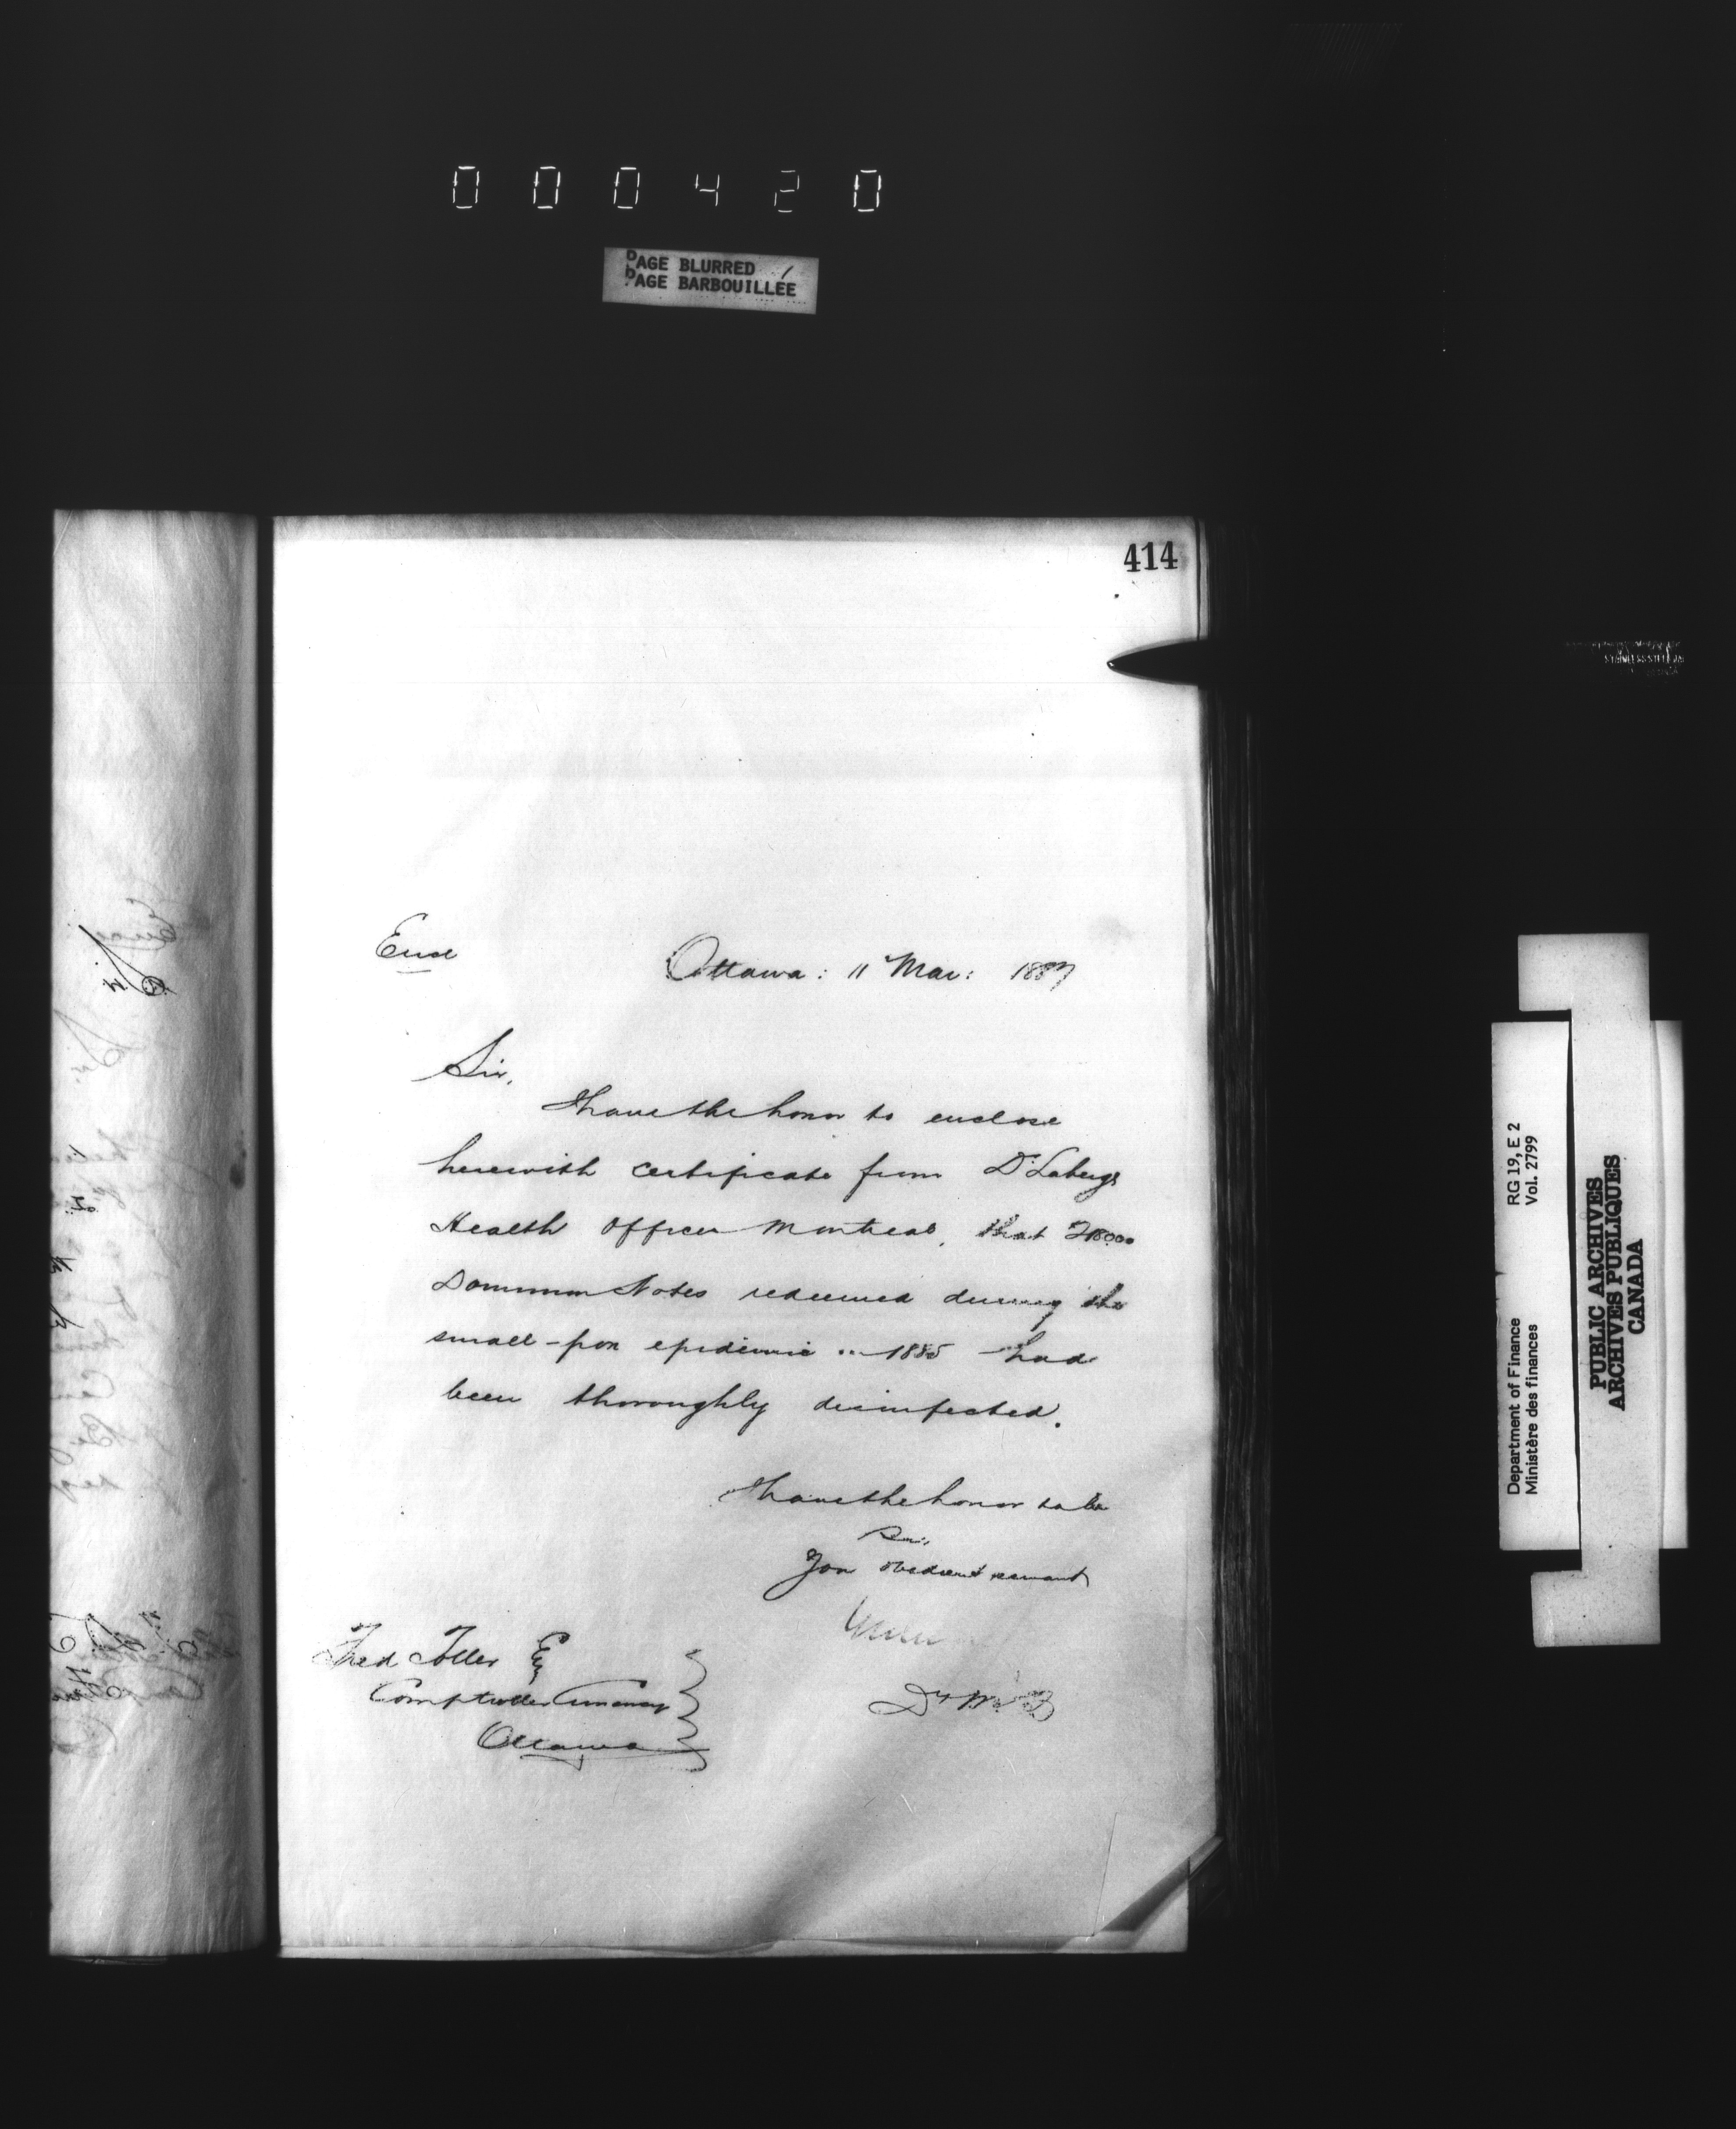 000420
PAGE BLURRED
PAGE BARBOUILLÉE
414
Encl
Ottawa: 11 Mar: 1887
Sir,
I have the honor to enclose
herewith certificate from Dr. Laberge
Health Officer Montreal, that
Dominion Notes redeemed during the
small-pox epidemic 1885 had
been thoroughly disinfected.
I have the honor to be
Sir,
Your obedient servant
Fred Toller Esq
Comptroller Currency
Ottawa
STAINLESS STEEL
RG 19, E 2
Vol. 2799
Department of Finance
Ministère des finances
PUBLIC ARCHIVES
ARCHIVES PUBLIQUES
CANADA